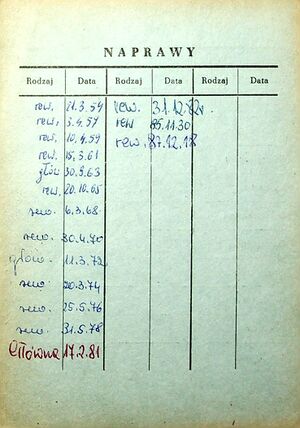 NAPRAWY
Rodzaj Data Rodzaj Data Rodzaj Data
rew. 21.3.54 rew. 31.12.82r.
rew. 5.4.57 rew 85.11.30
rew. 10.4.59 rew. 87.12.18
rew. 15.3.61
głów 30.5.63
rew. 20.10.65
rew. 6.3.68
rew. 30.4.70
główna 11.3.72
rew. 20.3.74
rew. 25.5.76
rew. 31.5.78
Główna 17.2.81